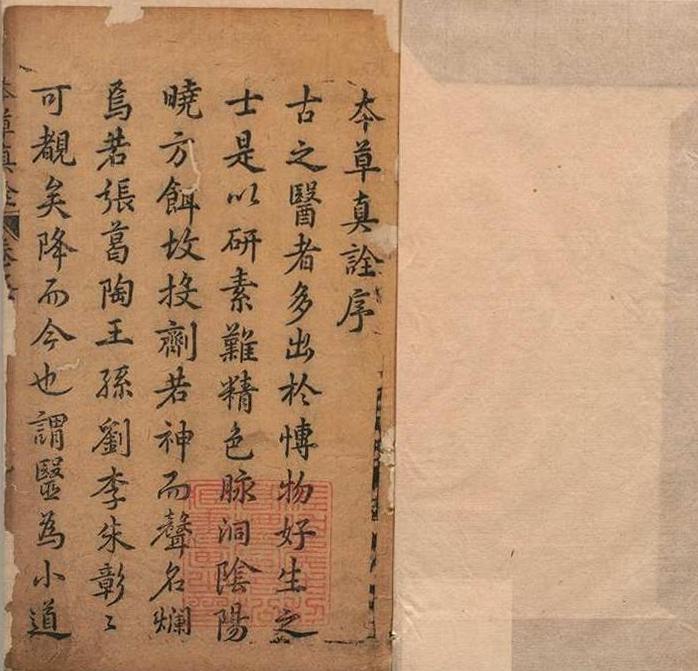 夲草真詮序
古之醫者多出於愽物好生之
士是以研素難精色脉洞陰陽
曉方餌故投劑若神而聲名爛
焉若張葛陶王孫劉李朱彰〻
可覩矣降而今也謂毉為小道